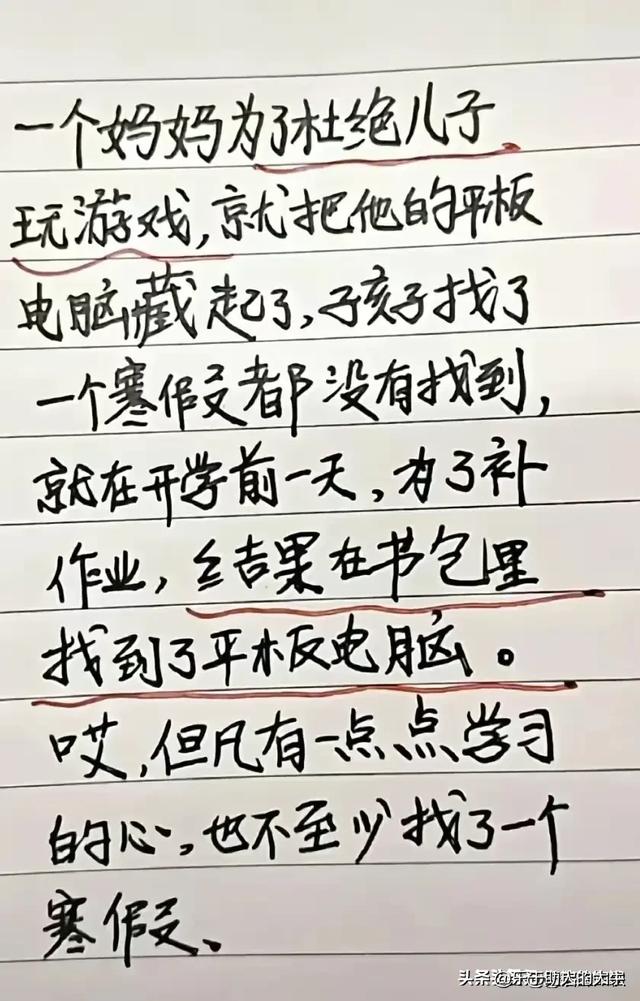 一个妈妈为了杜绝儿子
玩游戏,就把他的平板
电脑藏起了,孑孩子找了
一个寒假都没有找到,
就在开学前一天,为了补
作业,结果在书包里
找到了平板电脑。
哎,但凡有一点点学习
的心,也不至少找了一个
寒假、